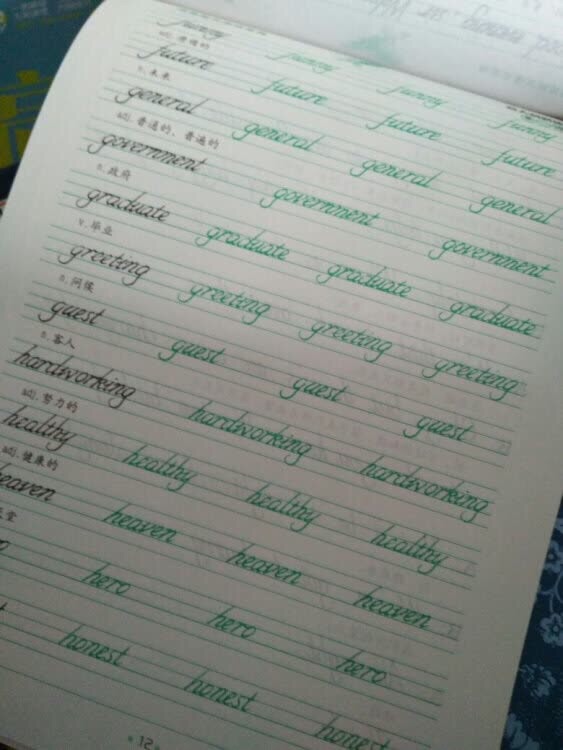 funny funny funny funny
adj. 滑稽的
future future future future
n. 未来
general general general general
adj. 普通的、普遍的
government government government
n. 政府
graduate graduate graduate graduate
v. 毕业
greeting greeting greeting greeting
n. 问候
guest guest guest guest
n. 客人
hardworking hardworking hardworking
adj. 努力的
healthy healthy healthy healthy
adj. 健康的
heaven heaven heaven heaven
堂
hero hero hero
honest honest honest
12